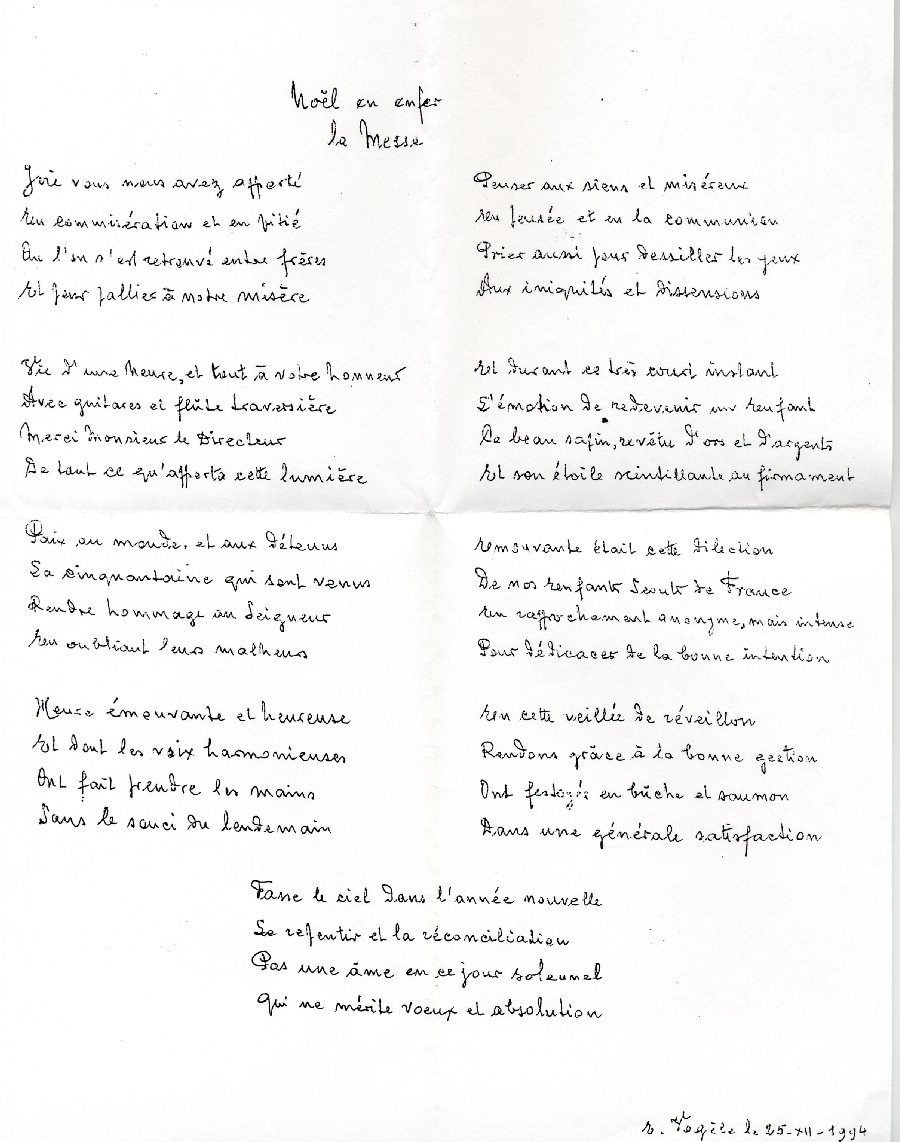 Noël en enfer
la Messe
Joie vous nous avez apporté
En commisération et en pitié
Ou l'on s'est retrouvé entre frères
Et pour pallier à notre misère
Vie d'une heure, et tout à votre honneur
Avec guitares et flûte traversière
Merci Monsieur le Directeur
De tout ce qu'apporta cette lumière
Paix au monde, et aux détenus
La cinquantaine qui sont venus
Rendre hommage au Seigneur
En oubliant leurs malheurs
Heure émouvante et heureuse
Et dont les voix harmonieuses
Ont fait prendre les mains
Sans le souci du lendemain
Penser aux siens et miséreux
En pensée et en la communion
Prier aussi pour dessiller les yeux
Aux iniquités et dissensions
Et durant ce très court instant
L'émotion de redevenir un enfant
Ce beau sapin, revêtu d'ors et d'argents
Et son étoile scintillante au firmament
Emouvante était cette dilection
De nos enfants Scouts de France
En rapprochement anonyme, mais intense
Pour dédicacer de la bonne intention
En cette veillée de réveillon
Rendons grâce à la bonne gestion
Ont festoyés en bûche et saumon
Dans une générale satisfaction
Fasse le ciel dans l'année nouvelle
Le repentir et la réconciliation
Pas une âme en ce jour solennel
Qui ne mérite voeux et absolution
le 25-XII-1994